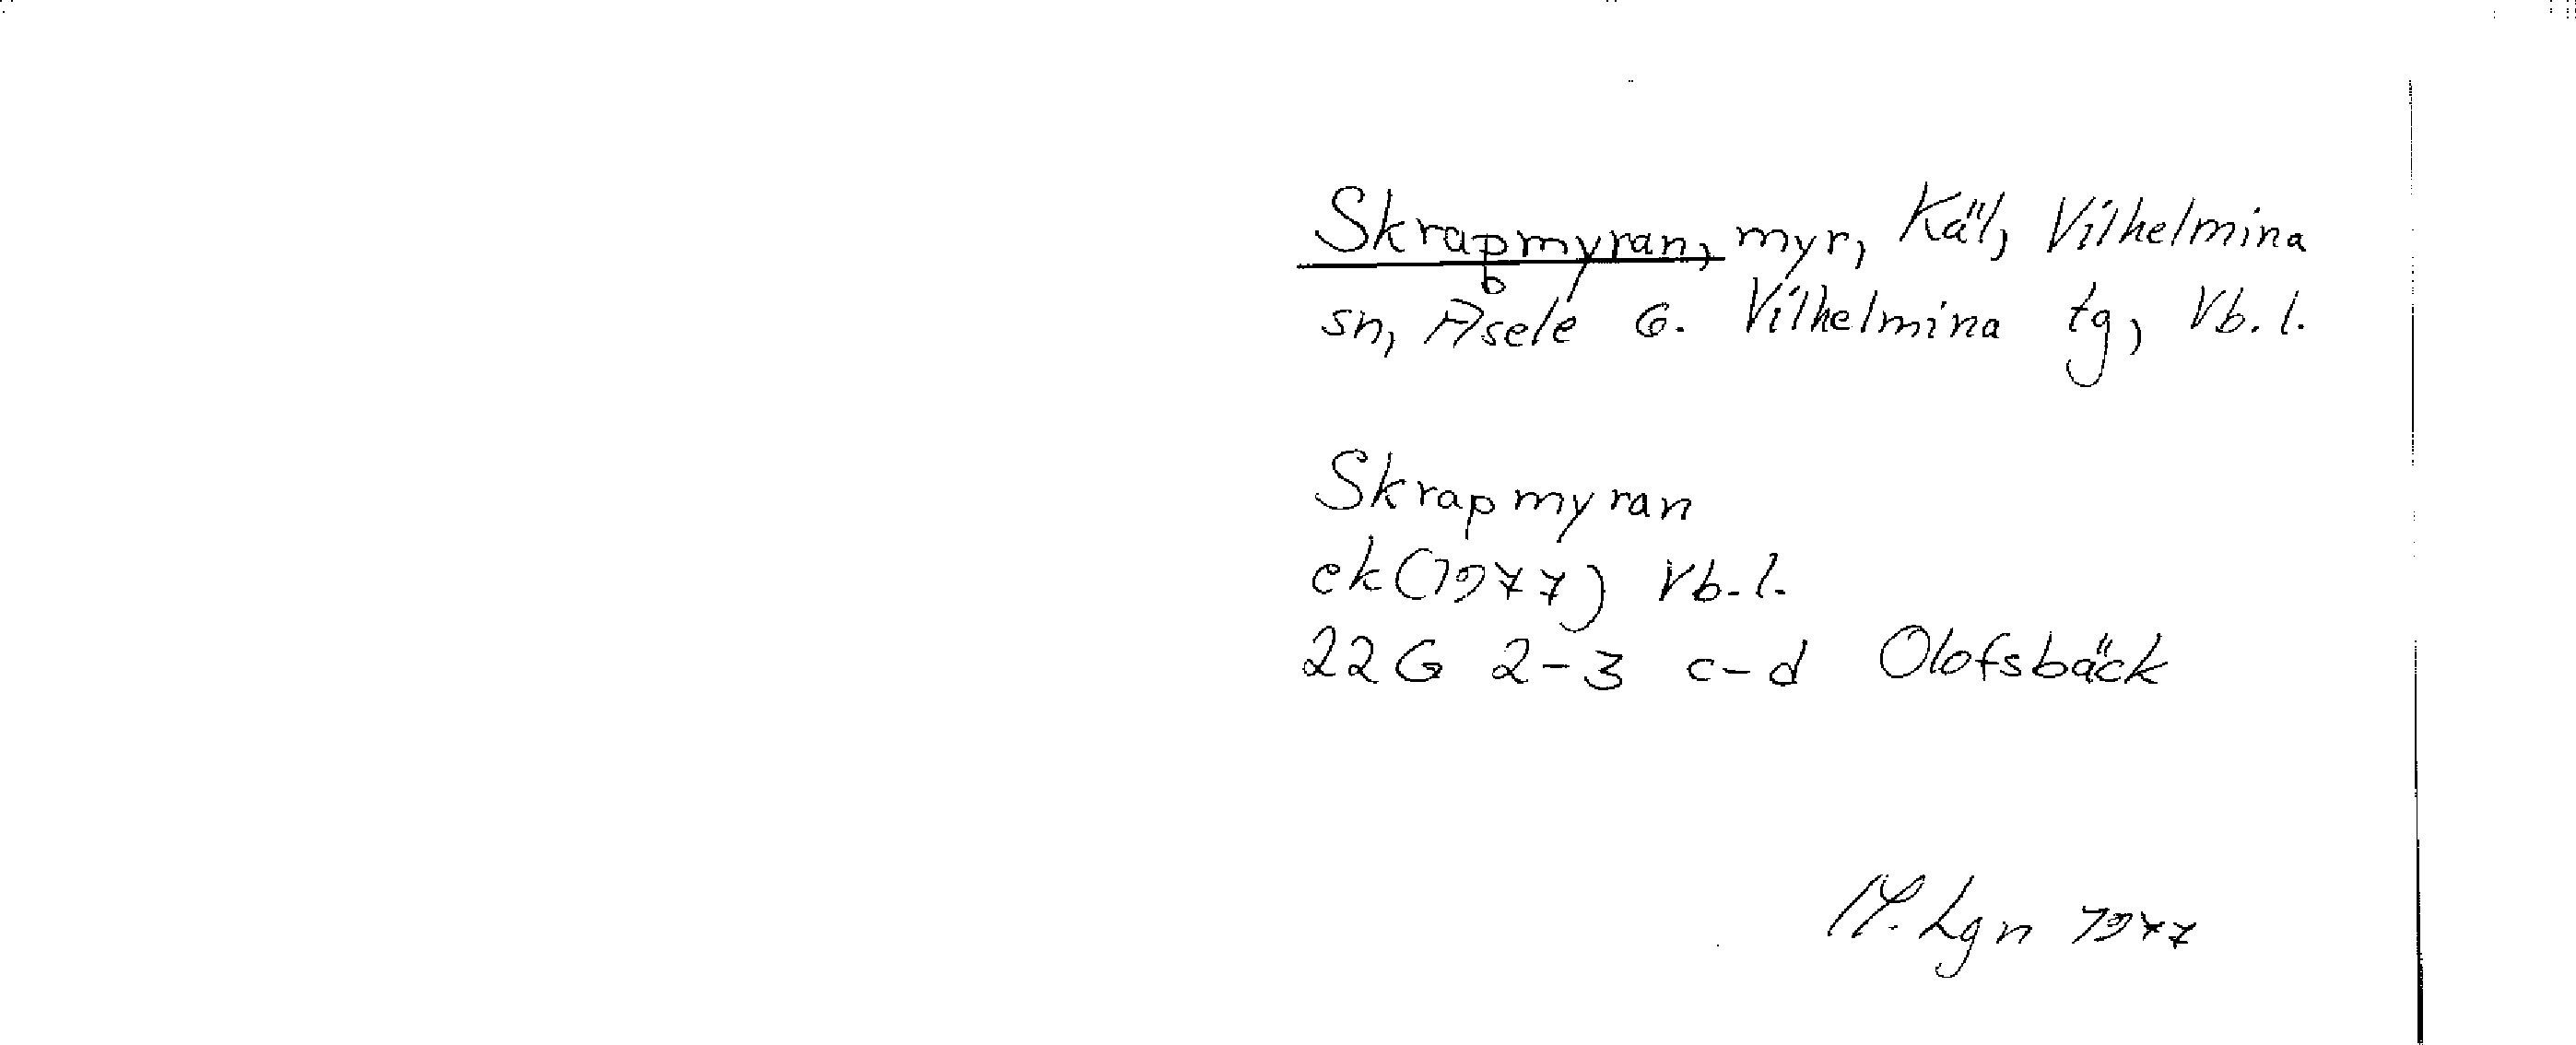 Skrapmyran, myr, Käl, Vilhelmina
sn, Åsele 6. Vilhelmina tg, Vb. l.
Skrapmyran
ek (1977) Vb. l.
22G 2-3 c-d Olofsbäck
M. Lgn 1977